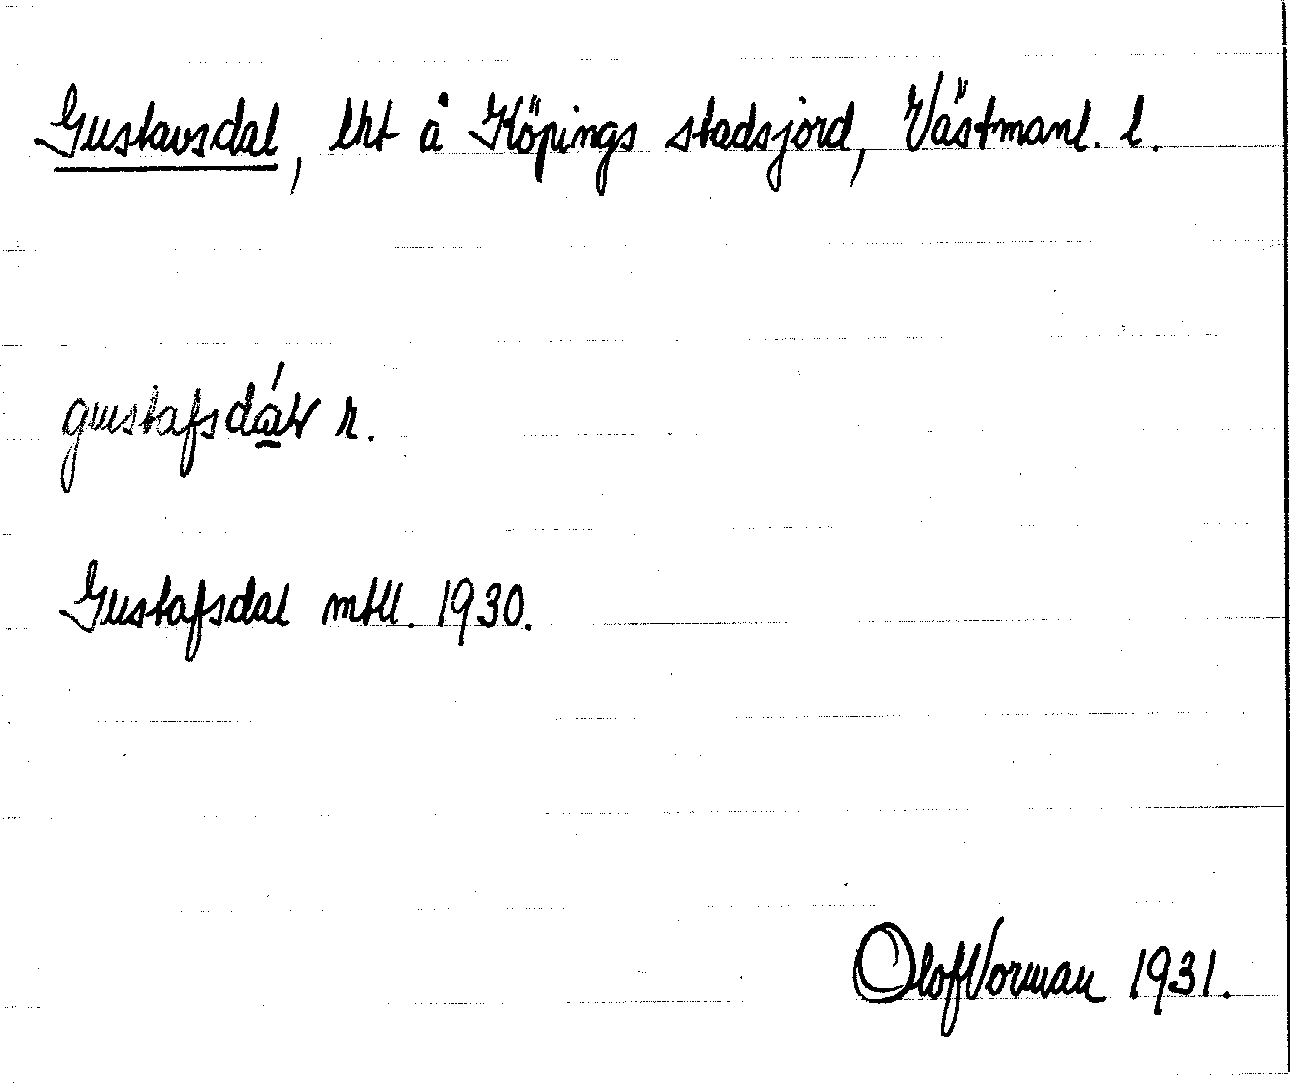 Gustavsdal, lht å Köpings stadsjord, Västmanl. l.
gustafsdáw r.
Gustafsdal mtll. 1930.
Olof Vorman 1931.